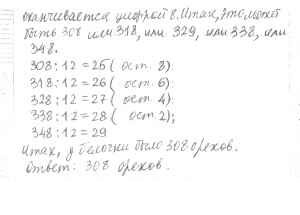 оканчивается цифрой 8. Итак, это может
быть 308 или 318, или 329, или 338, или
348.
308 : 12 = 25 ( ост. 8)
318 : 12 = 26 ( ост. 6)
328 : 12 = 27 ( ост. 4)
338 : 12 = 28 ( ост. 2);
348 : 12 = 29
Итак, у белочки было 308 орехов.
Ответ: 308 орехов.